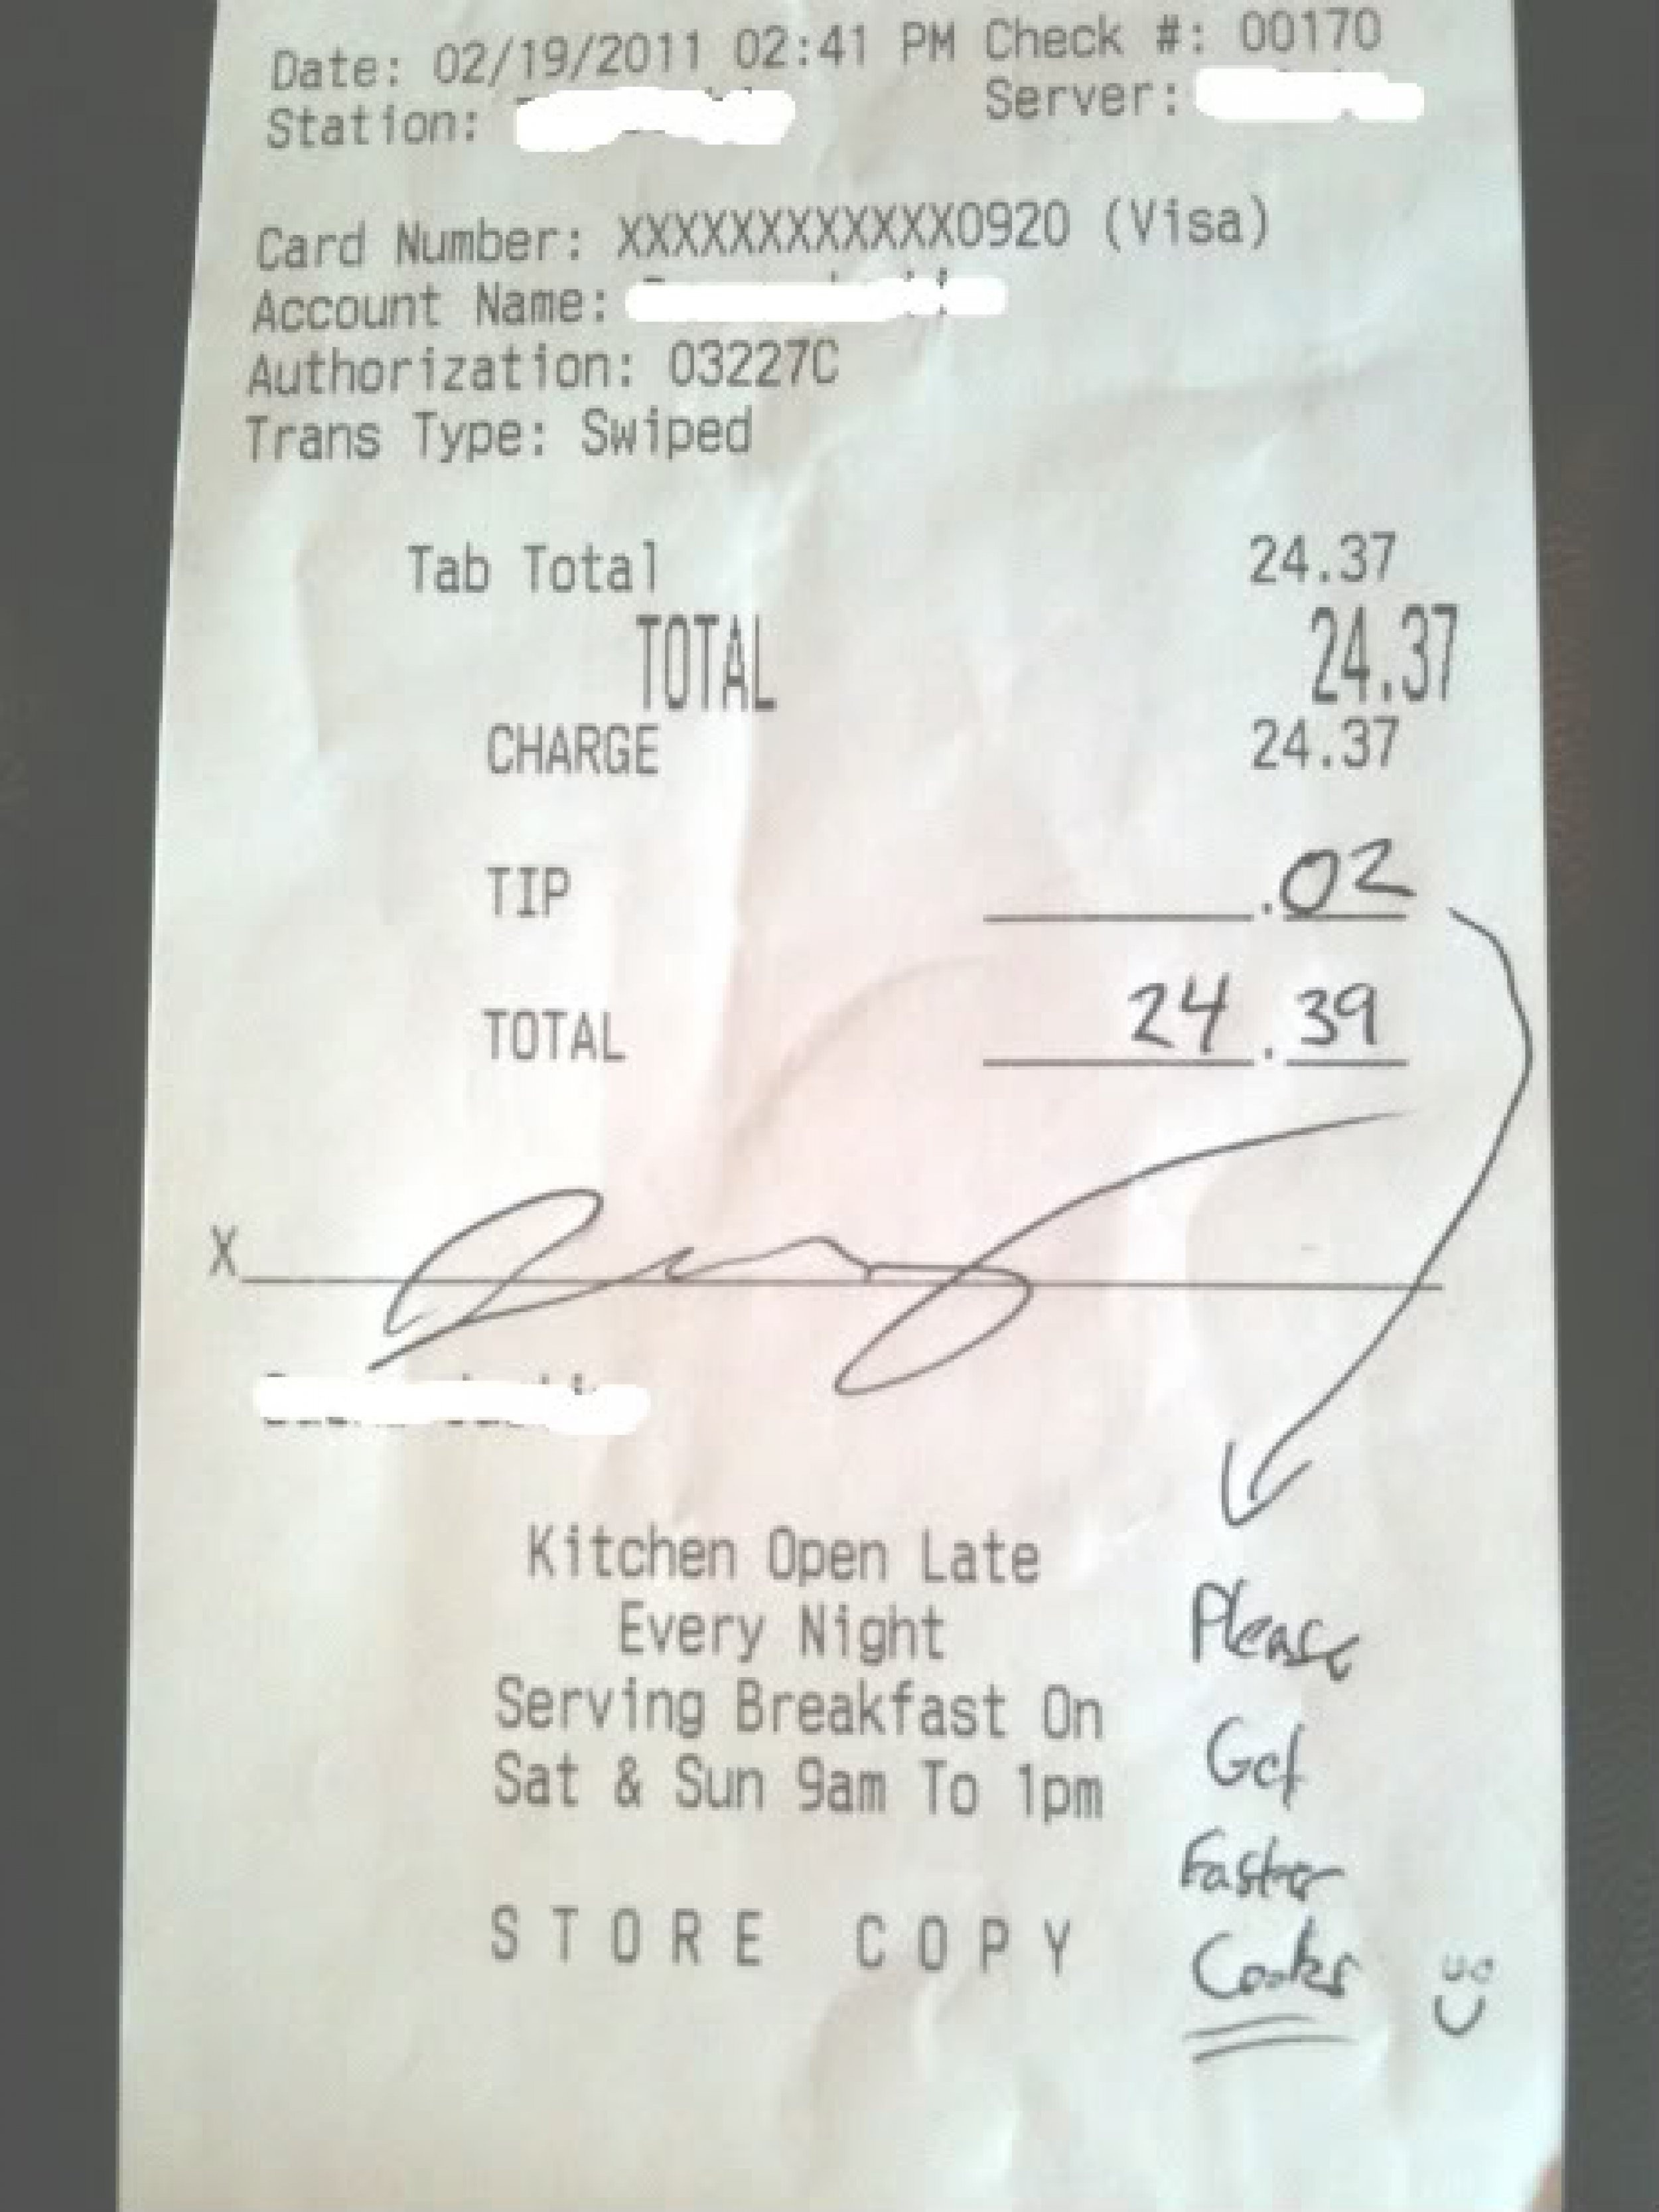 Date: 02/19/2011 02:41 PM Check #: 00170
Station: Server:
Card Number: XXXXXXXXXXXX0920 (Visa)
Account Name:
Authorization: 03227C
Trans Type: Swiped
Tab Total 24.37
TOTAL 24.37
CHARGE 24.37
TIP .02
TOTAL 24.39
X
Kitchen Open Late
Every Night
Serving Breakfast On
Sat & Sun 9am To 1pm
STORE COPY
Please
Get
Faster
Cooks